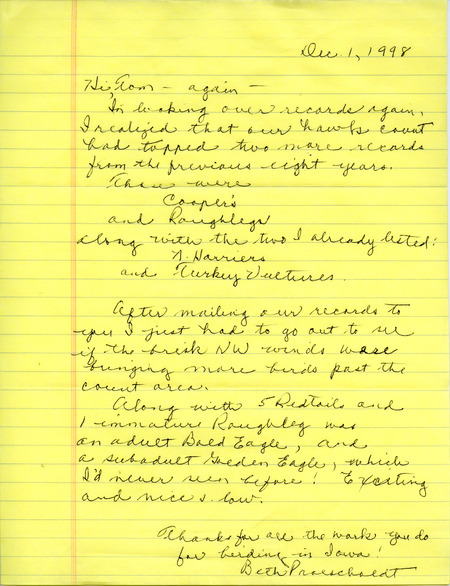 Dec 1, 1998
Hi, Tom - again -
In looking over records again,
I realized that our hawk count
had topped two more records
from the previous eight years.
These were
Cooper's
and Roughlegs
along with the two I already listed:
N. Harriers
and Turkey Vultures.
After mailing our records to
you I just had to go out to see
if the brisk NW winds were
bringing more birds past the
count area.
Along with 5 Redtails and
1 immature Roughleg was
an adult Bald Eagle, and
a subadult Golden Eagle, which
I'd never seen before! Exciting
and nice & low.
Thanks for all the work you do
for birding in Iowa!
Beth Proescholdt